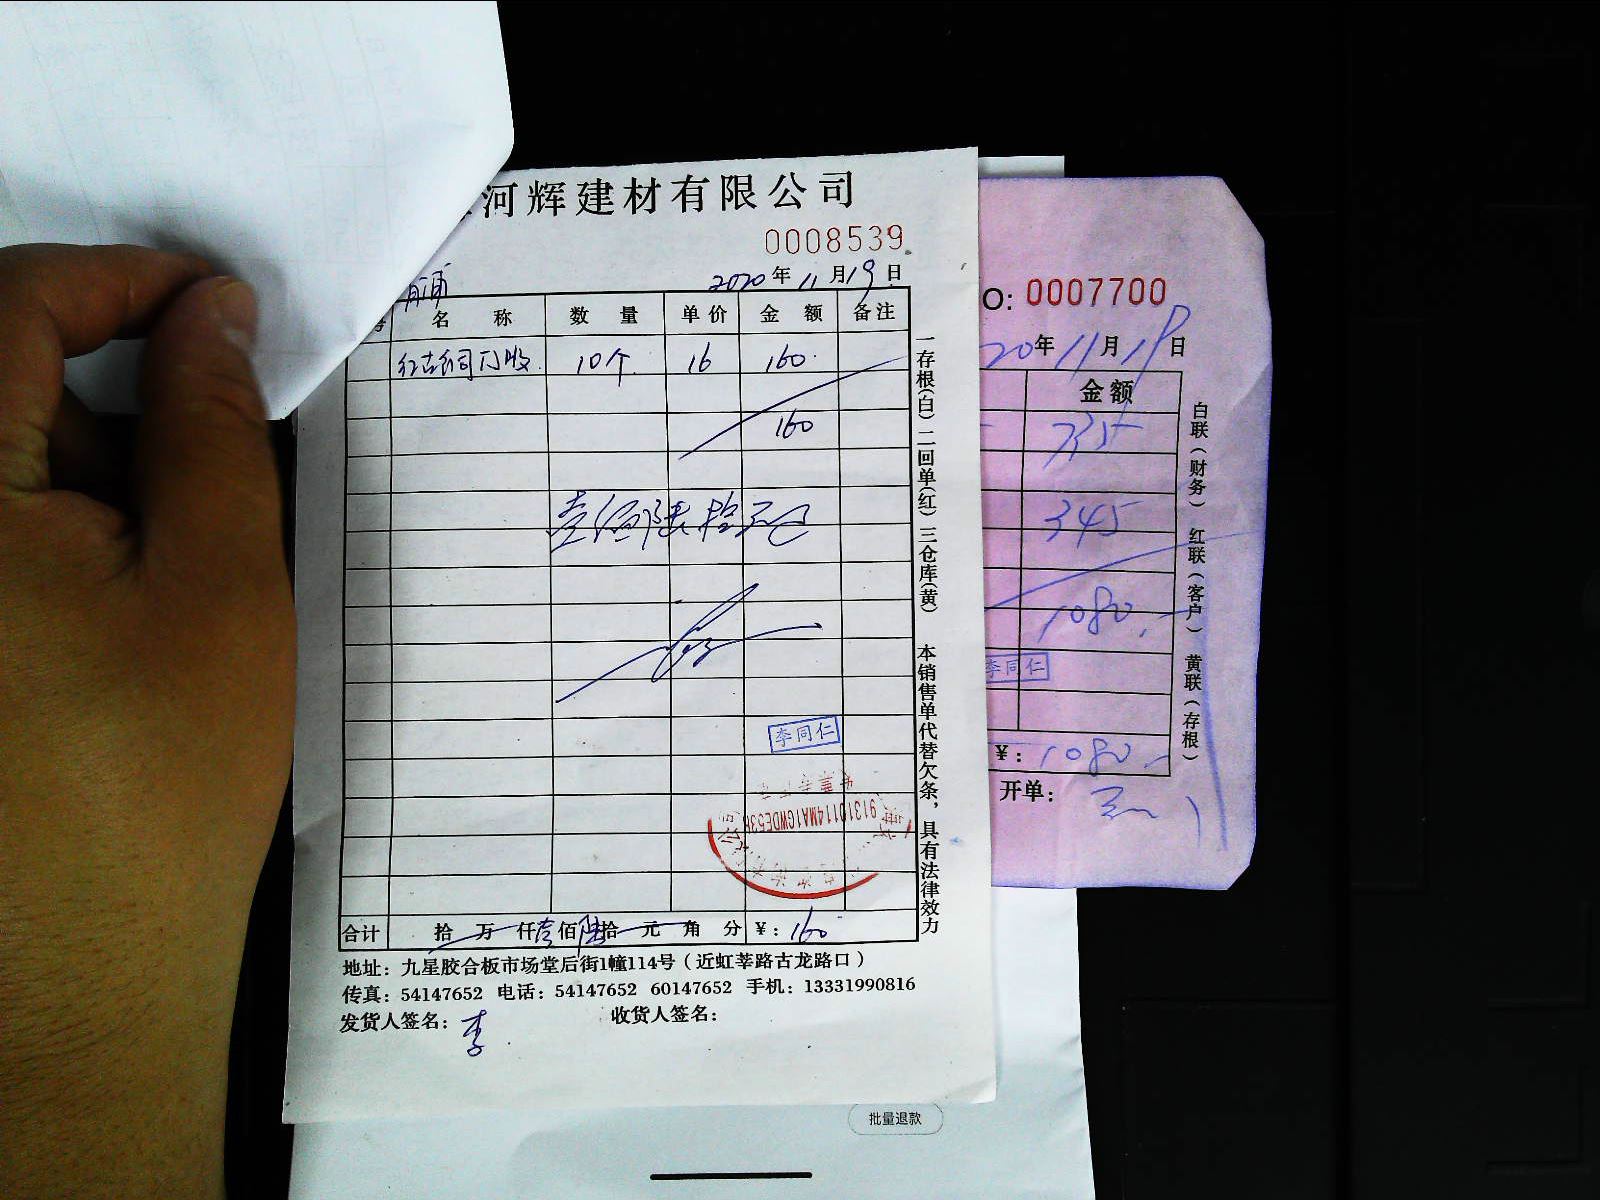 河辉建材有限公司
0008539
2020年11月19日
名称 数量 单价 金额 备注
红古铜门收 10个 16 160
160
壹佰陆拾元
李同仁
91310114MA1GWDE53
合计 拾万仟壹佰陆拾元角分 ¥:160
地址：九星胶合板市场堂后街1幢114号（近虹莘路古龙路口）
传真：54147652 电话：54147652 60147652 手机：13331990816
发货人签名：李 收货人签名：
一存根(白)二回单(红)三仓库(黄) 本销售单代替欠条，具有法律效力
O: 0007700
20年11月19日
金额
335
345
1080.
李同仁
¥：1080
开单：
白联（财务）红联（客户）黄联（存根）
批量退款